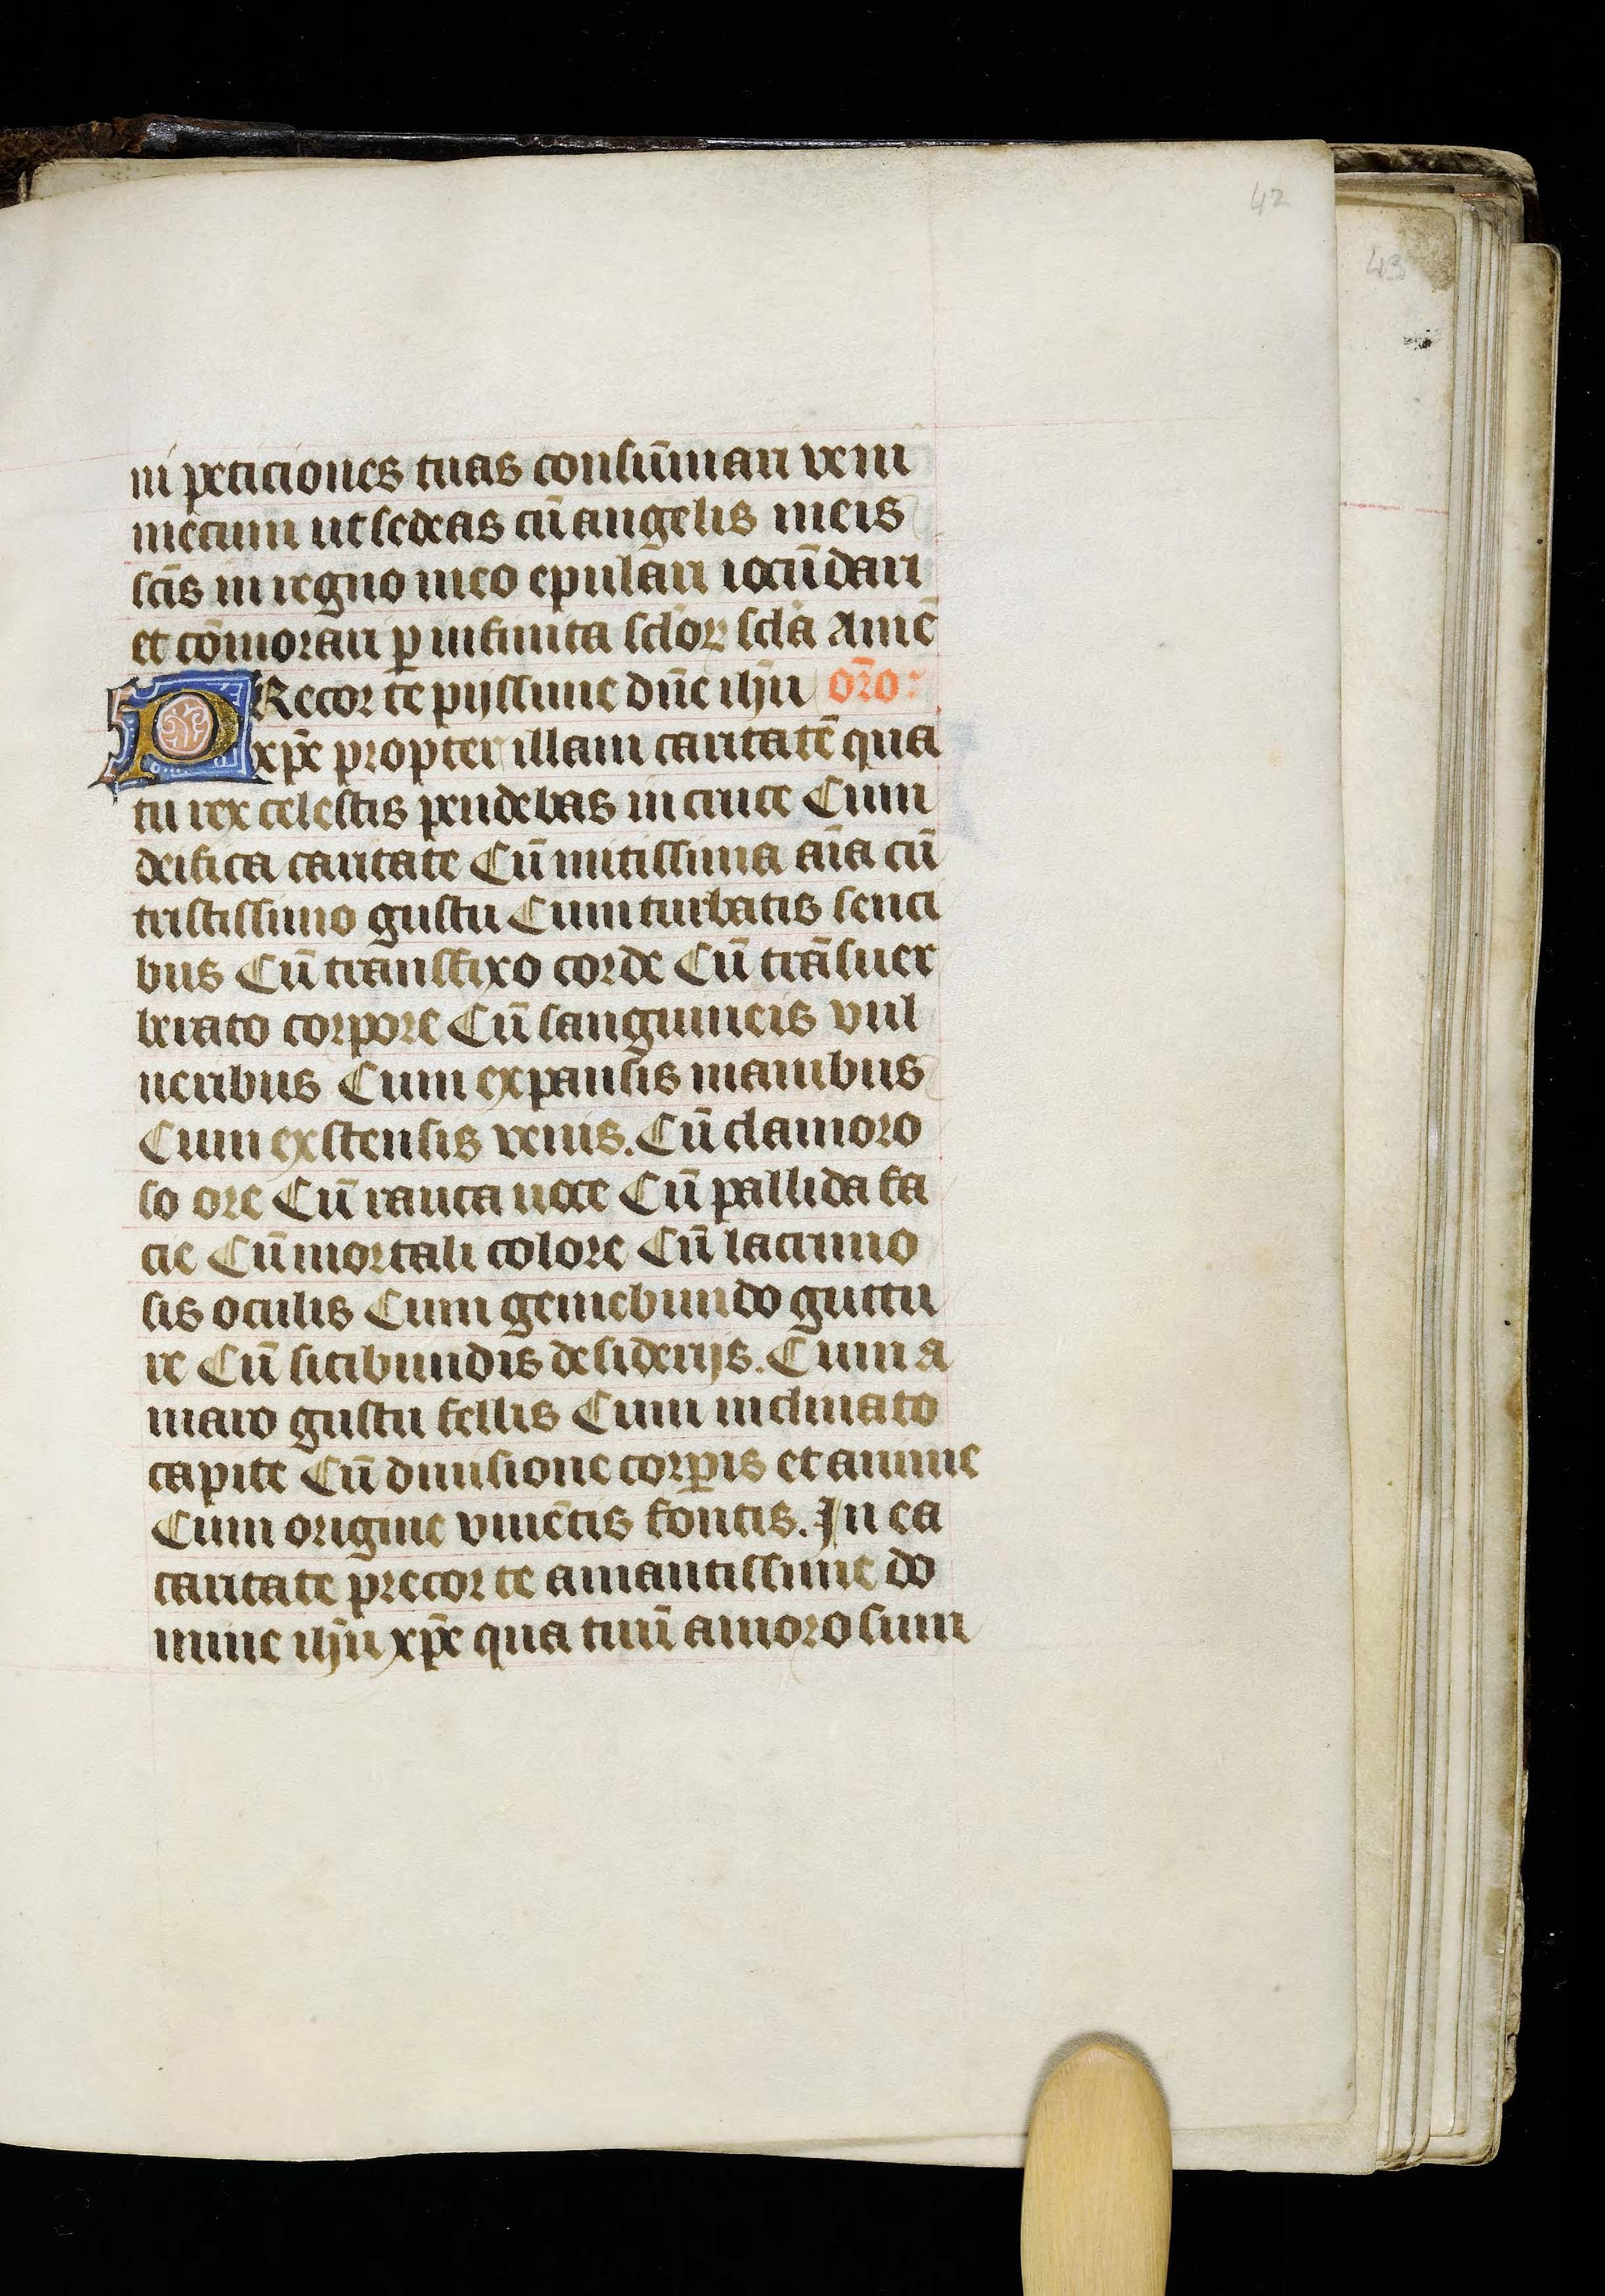 42
43
ni peticiones tuas consūmari veni
mecum ut sedeas cū angelis meis
scīs in regno meo epulari iocūdari
et cōmorari ꝑ infinita sclorꝝ scla Amē
PRecor te pijssime dn̄e ihū oro:
xp̄e propter illam caritatē qua
tu rex celestis pendebas in cruce Cum
deifica caritate Cū mitissima aīa cū
tristissimo gustu Cum turbatis senci
bus Cū transfixo corde Cū trāsuer
berato corpore Cū sanguineis vul
neribus Cum expansis manibus
Cum exstensis venis. Cū clamoro
so ore Cū rauca uoce Cū pallida fa
cie Cū mortali colore Cū lacrimo
sis oculis Cum gemebundo guttu
re Cū sitibundis desiderijs. Cum a
maro gustu fellis Cum inclinato
capite Cū diuisione corꝑis et anime
Cum origine viuētis fontis. In ea
caritate precor te amantissime do
mine ihū xp̄e qua tuū amorosum